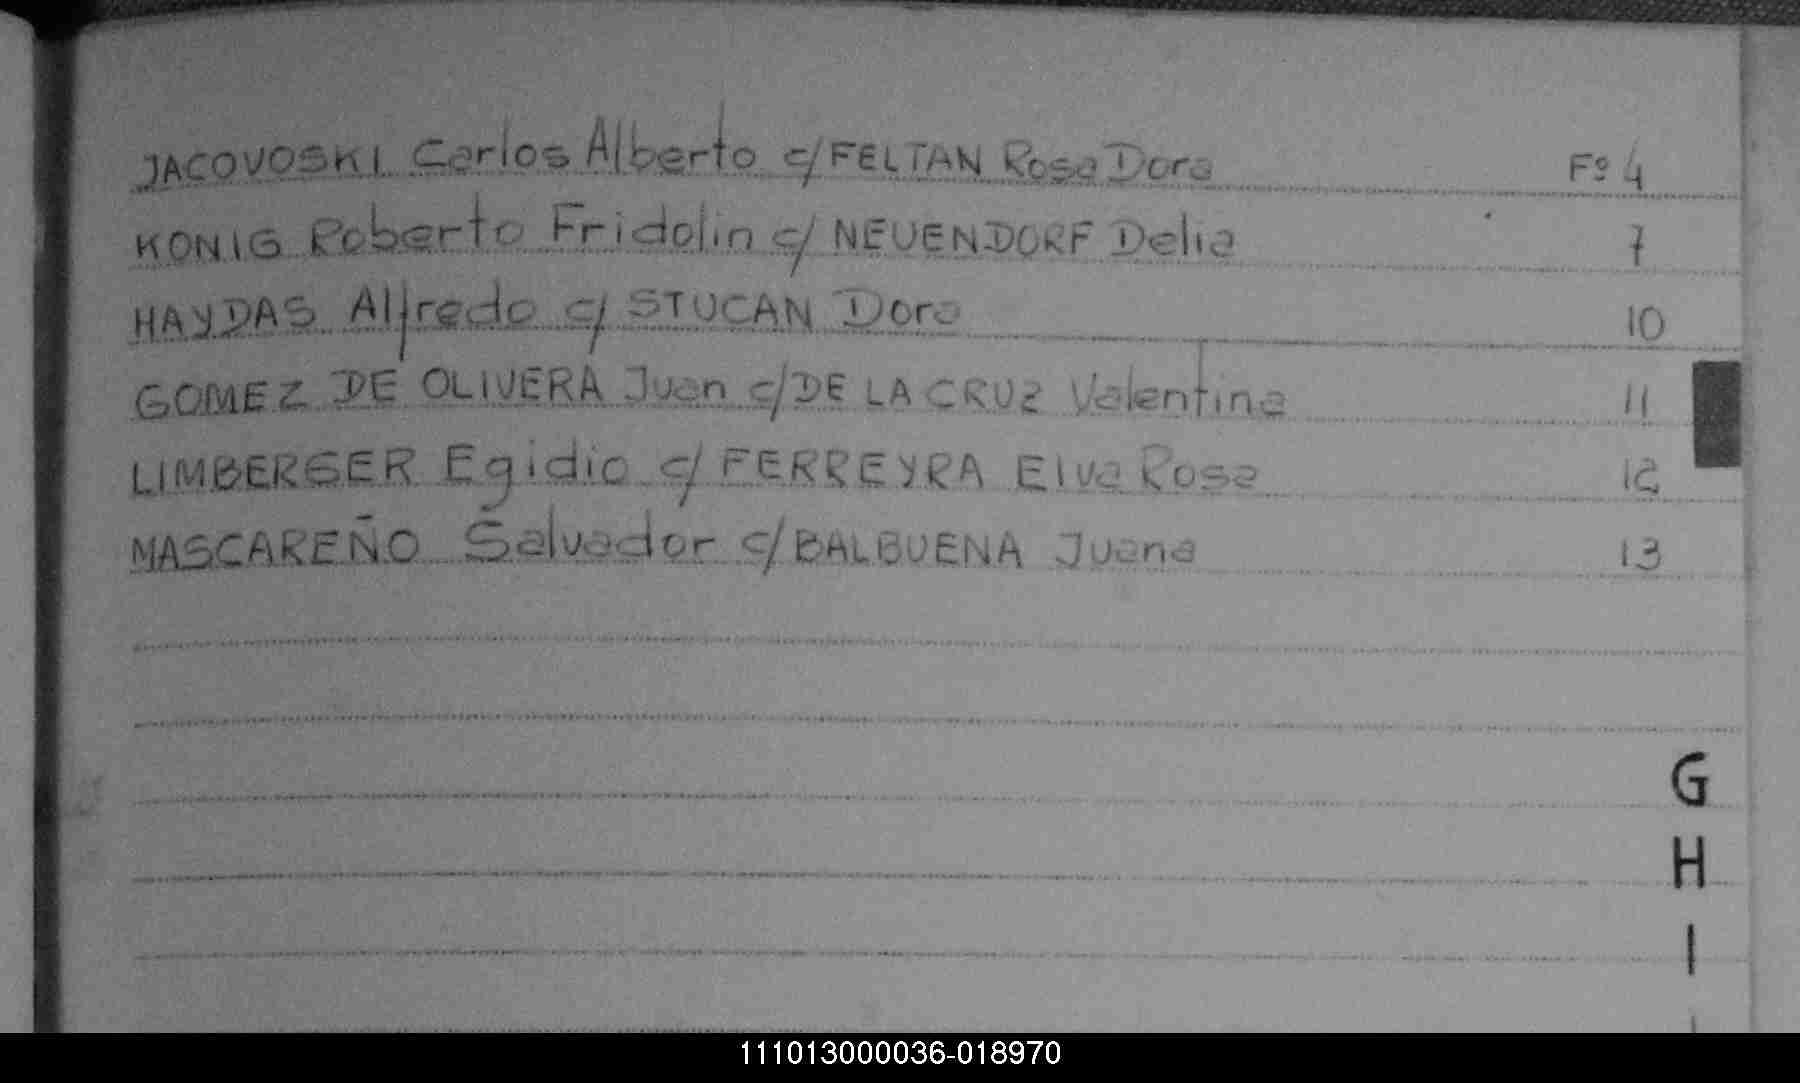 JACOVOSKI Carlos Alberto c/ FELTAN Rosa Dora Fº 4
KONIG Roberto Fridolin c/ NEUENDORF Delia 7
HAYDAS Alfredo c/ STUCAN Dora 10
GOMEZ DE OLIVERA Juan c/ DE LA CRUZ Valentina 11
LIMBERGER Egidio c/ FERREYRA Elva Rosa 12
MASCAREÑO Salvador c/ BALBUENA Juana 13
G
H
I
111013000036-018970